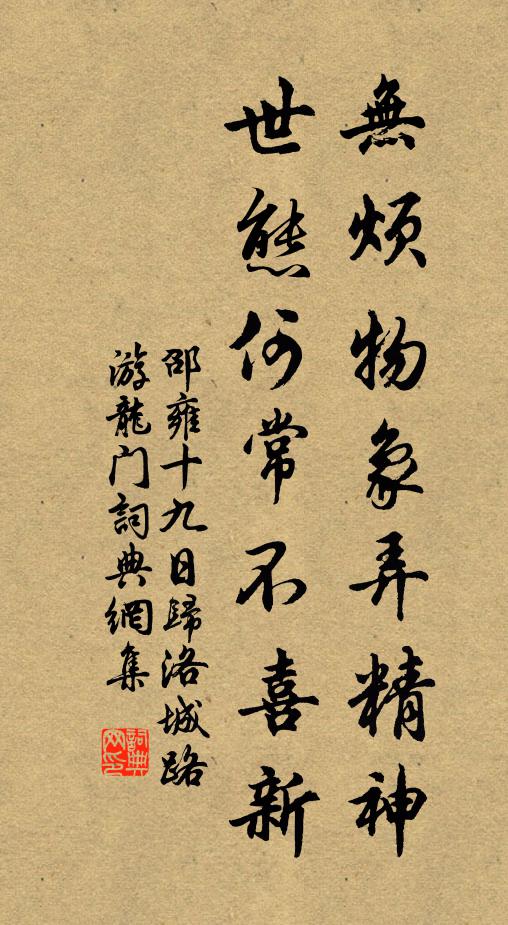 無煩物象弄精神
世態何常不喜新
邵雍十九日歸洛城路
游龍门詞典網集
詞典網印